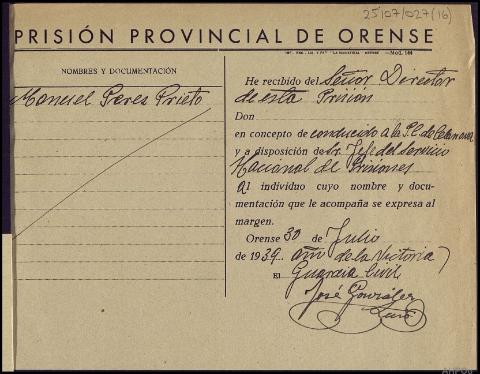 25107/027(16)
PRISIÓN PROVINCIAL DE ORENSE
Mod. 144
NOMBRES Y DOCUMENTACIÓN
Manuel Peres Prieto
He recibido del Señor Director
de esta Prisión
Don
en concepto de conducido a la P.C. de Celanova
y a disposición de Sr. Jefe del Servicio
Nacional de Prisiones
al individuo cuyo nombre y docu-
mentación que le acompaña se expresa al
margen.
Orense 30 de Julio
de 1939. año de la Victoria
El Guardia Civil
José González